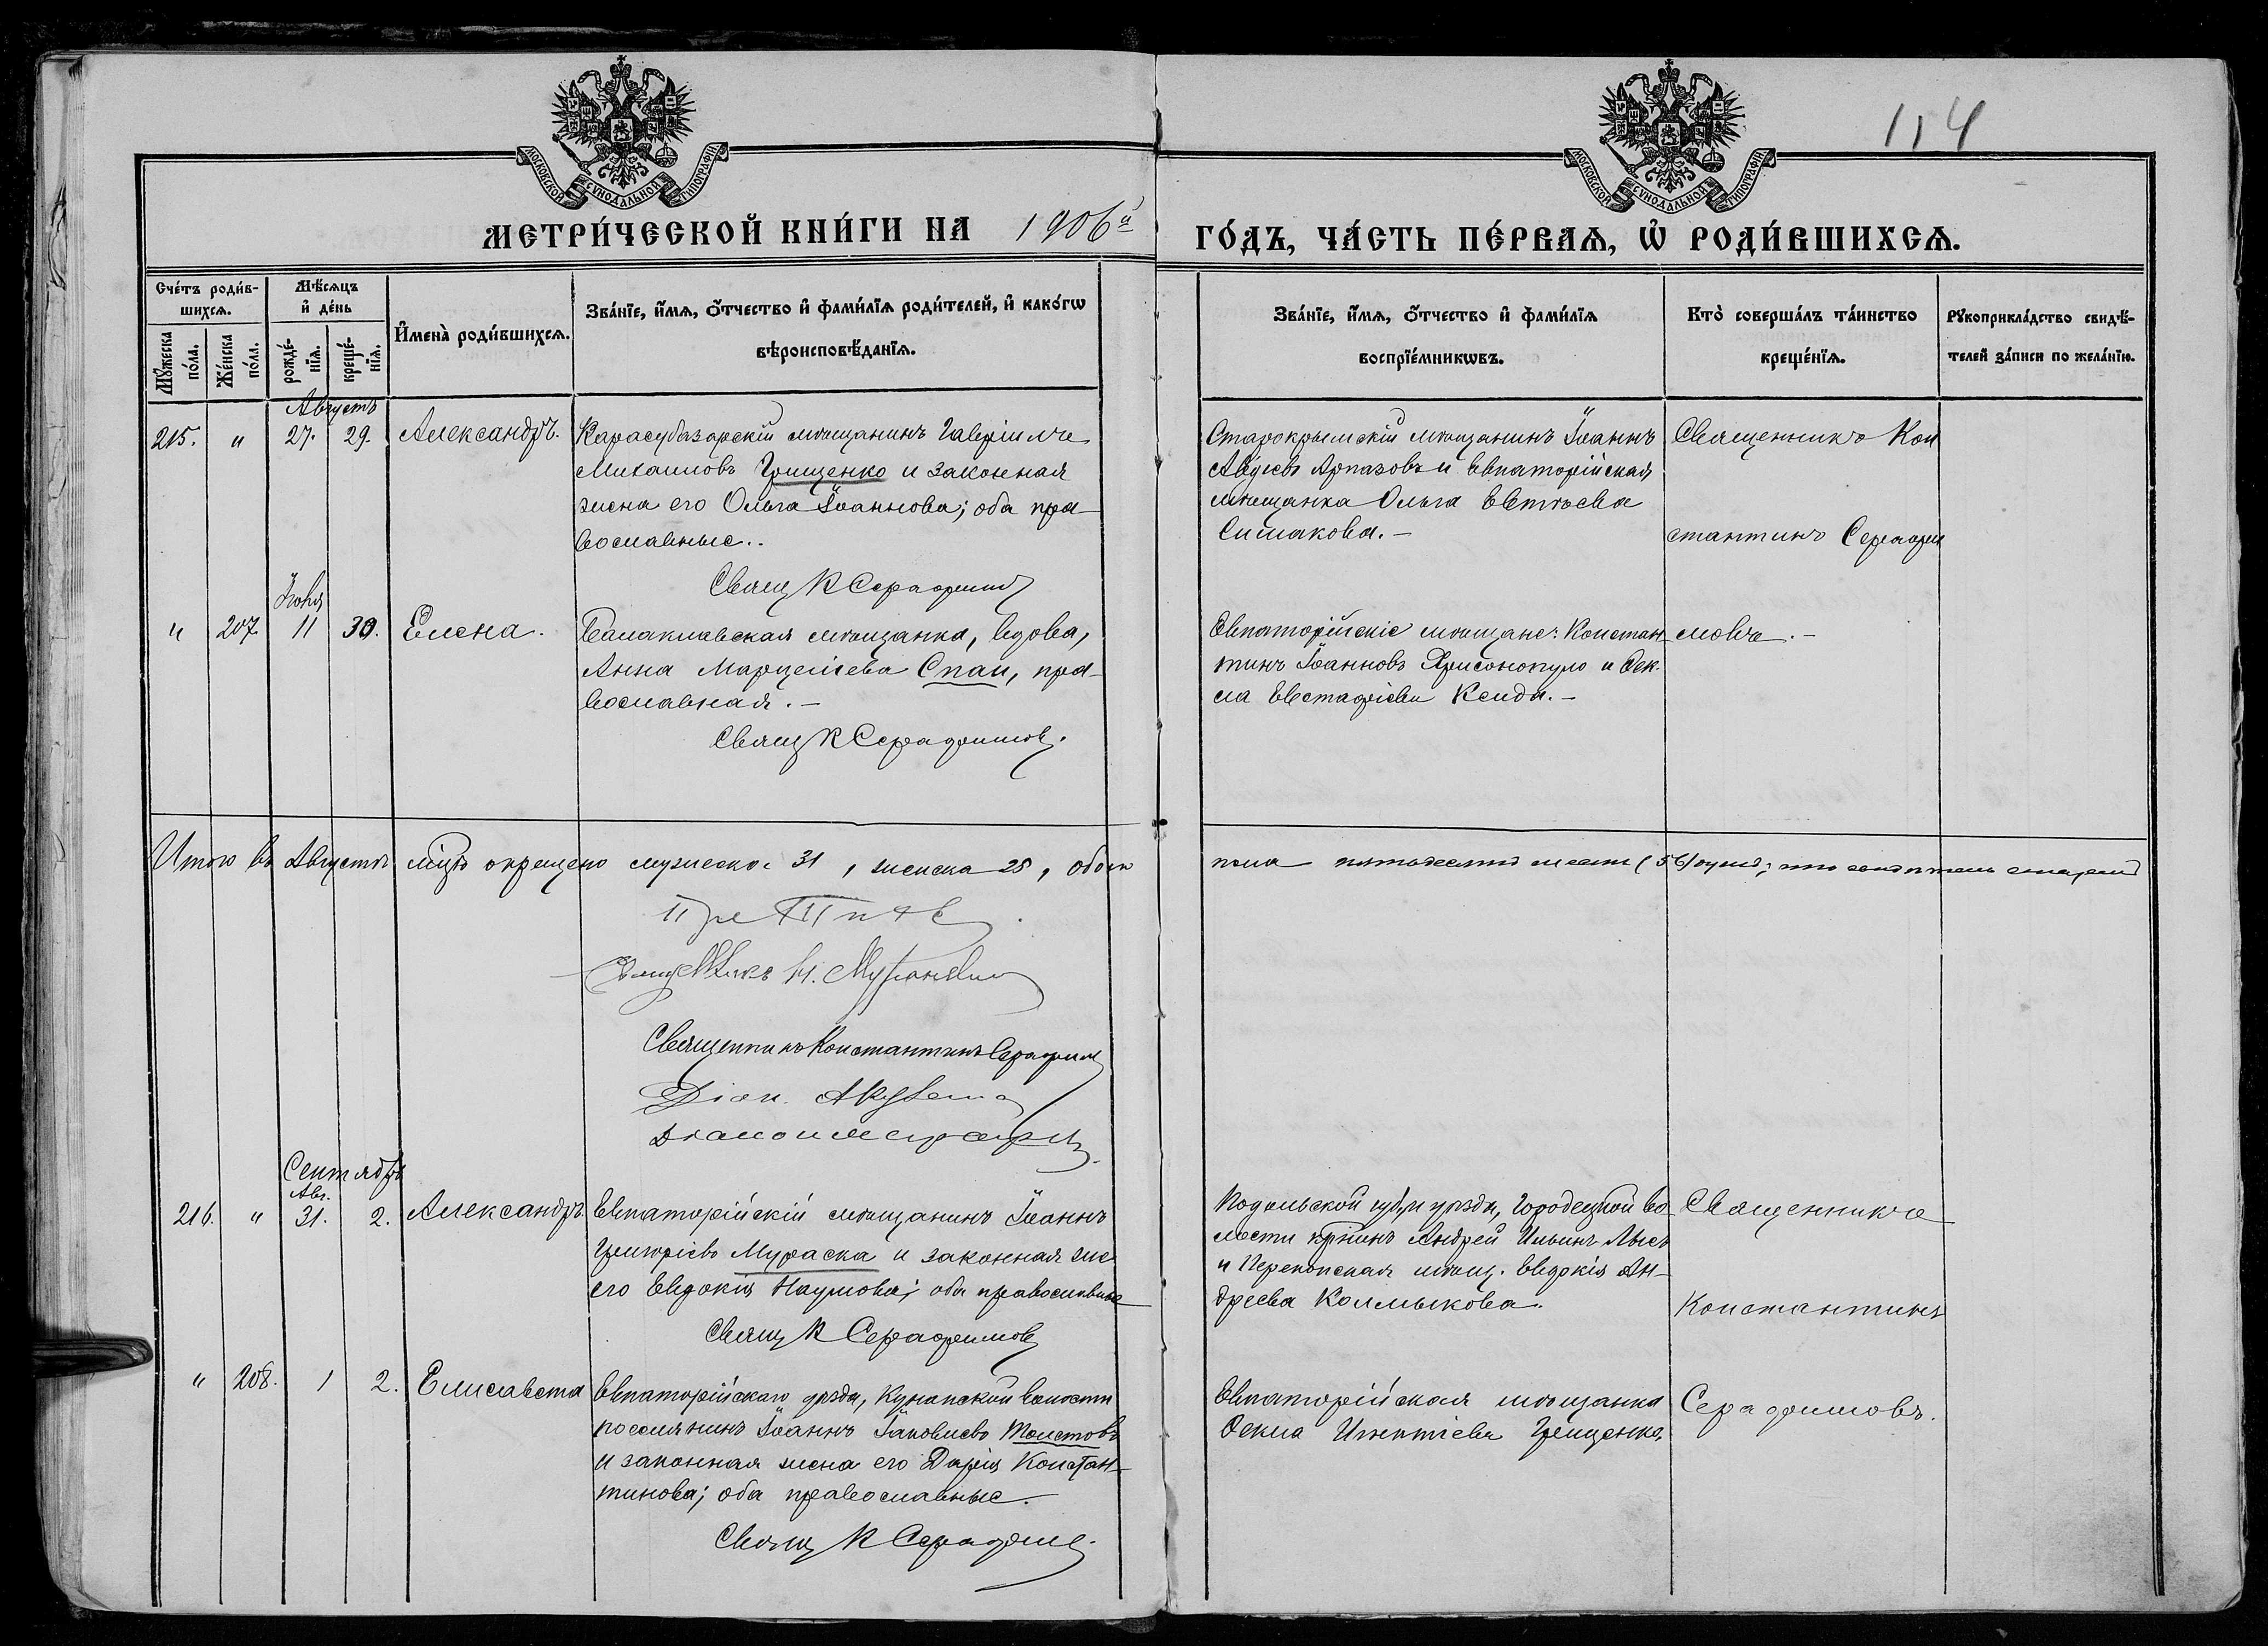 МОСКОВСКОЙ СѴНОДАЛЬНОЙ ТИПОГРАФІИ
МОСКОВСКОЙ СѴНОДАЛЬНОЙ ТИПОГРАФІИ
114
МЕТРИ́ЧЕСКОЙ КНИ́ГИ НА 1906й ГО́ДЪ, ЧА́СТЬ ПЕ́РВАѦ, Ѡ҆ РОДИ́ВШИХСѦ.
Сче́тъ роди́в-
шихсѧ.
Мѣ́сѧцъ
и҆ де́нь
И҆мена̀ роди́вшихсѧ.
Зва́нїе, и҆́мѧ, ѻ҆́тчество и҆ фами́лїѧ роди́телей, и҆ како́гѡ
вѣроисповѣ́данїѧ.
Мꙋ́жеска
по́ла.
Же́нска
по́ла.
рожде́-
нїѧ.
креще́-
нїѧ.
Зва́нїе, и҆́мѧ, ѻ҆́тчество и҆ фами́лїѧ
воспрїе́мникѡвъ.
Кто̀ соверша́лъ та́инство
креще́нїѧ.
Рꙋкоприкла́дство свидѣ́-
телей за́писи по жела́нїю.
Августъ
215. " 27. 29. Александръ.
Карасубазарскій мѣщанинъ Гавріилъ
Михаиловъ Грищенко и законная
жена его Ольга Іоаннова; оба пра-
вославные..
Свящ К Серафимов
Старокрымскій мѣщанинъ Іоаннъ
Авдіевъ Арпазовъ и Евпаторійская
мѣщанка Ольга Евтѣева
Симакова. –
Священникъ Кон
стантинъ Серафи
Іюня
" 207. 11 30. Елена.
Балаклавская мѣщанка, вдова,
Анна Марцеліева Спаи, пра-
вославная. –
Свящ К Серафимов.
Евпаторійскіе мѣщане: Констан-
тинъ Іоанновъ Хрисонопуло и Ѳек-
ла Евстафіева Ксида. –
мовъ. –
Итого въ Августѣ м҃цѣ окрещено мужеска 31, женска 25, обоего
пола пятьдесятъ шесть (56) душъ;
Священникъ Константинъ Серафим
Сентябрь
Авг.
216. " 31. 2. Александръ.
Евпаторійскій мѣщанинъ Іоаннъ
Григоріевъ Мураска и законная же
его Евдокія Наумова; оба православные
Свящ К Серафимов
Подольской губ, и уѣзда, Городецкой во-
лости кр҃тнинъ Андрей Ильинъ Лысъ
и Перекопская мѣщ. Евдокія Ан-
дреева Колмыкова.
Священникъ
Константинъ
" 208. 1 2. Елисавета
Евпаторійскаго уѣзда, Кунанской волости
поселянинъ Іоаннъ Іаковлевъ Толстовъ
и законная жена его Дарія Констан-
тинова; оба православные.
Свящ К Серафим.
Евпаторійская мѣщанка
Ѳекла Игнатіева Грищенко.
Серафимовъ.